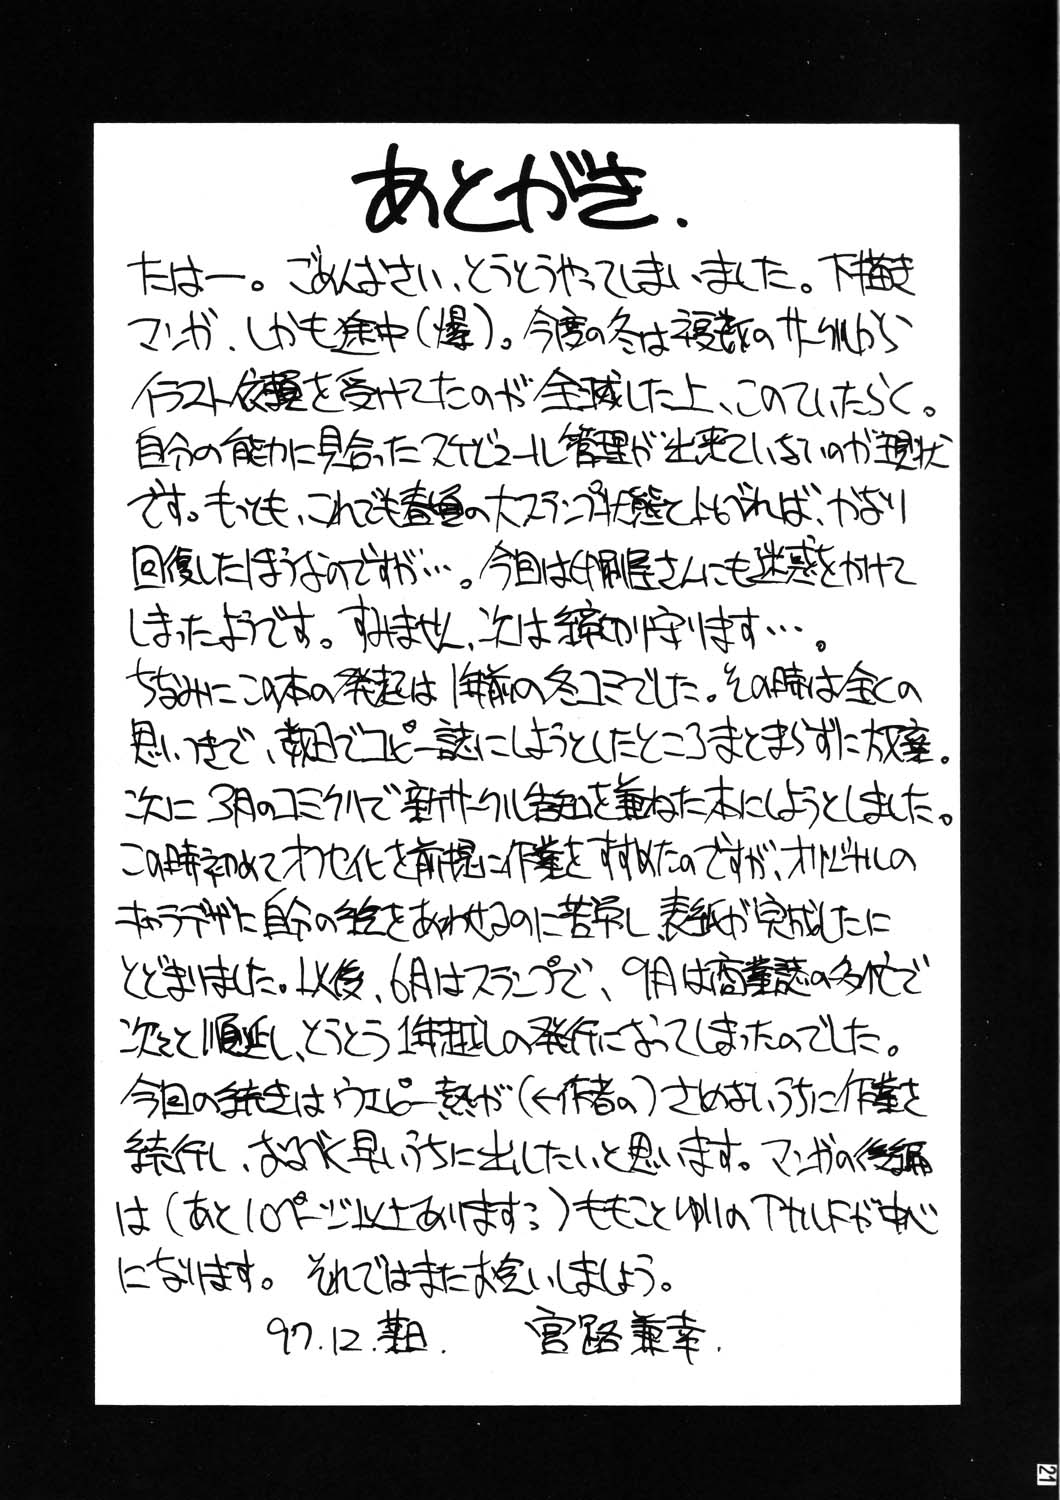 あとがき.
たはー。ごめんなさい、とうとうやってしまいました。下描き
マンガ、しかも途中(爆)。今度の冬は複数のサークルから
イラスト依頼を受けてたのが全滅した上、このていたらく。
自分の能力に見合ったスケジュール管理が出来ていないのが現状
です。もっとも、これでも春頃の大スランプ状態とよべれば、かなり
回復したほうなのですが…。今回は印刷屋さんにも迷惑をかけて
しまったようです。すみません、次は締切り守ります…。
ちなみにこの本の発起は1年前の冬コミでした。その時は全くの
思いつきで、数日でコピー誌にしようとしたところまとまらずに放棄。
次に3月のコミケルで新サークル告知を兼ねた本にしようとしました。
この時初めてオフセ化を前提に作業をすすめたのですが、オリジナルの
キャラデザに自分の絵をあわせるのに苦労し、表紙が完成したに
とどまりました。以後、6月はスランプで、9月は商業誌の多忙で
次々と順延し、とうとう1年越しの発行になってしまったのでした。
今回の続きはウエピー熱が(←作者の)さめないうちに作業を
続行し、なるべく早いうちに出したいと思います。マンガの後編
は(あと10ページ以上あります;)ももことゆりのが中心
になります。それではまたお会いしましょう。
97.12.某日. 宮路兼幸.
21